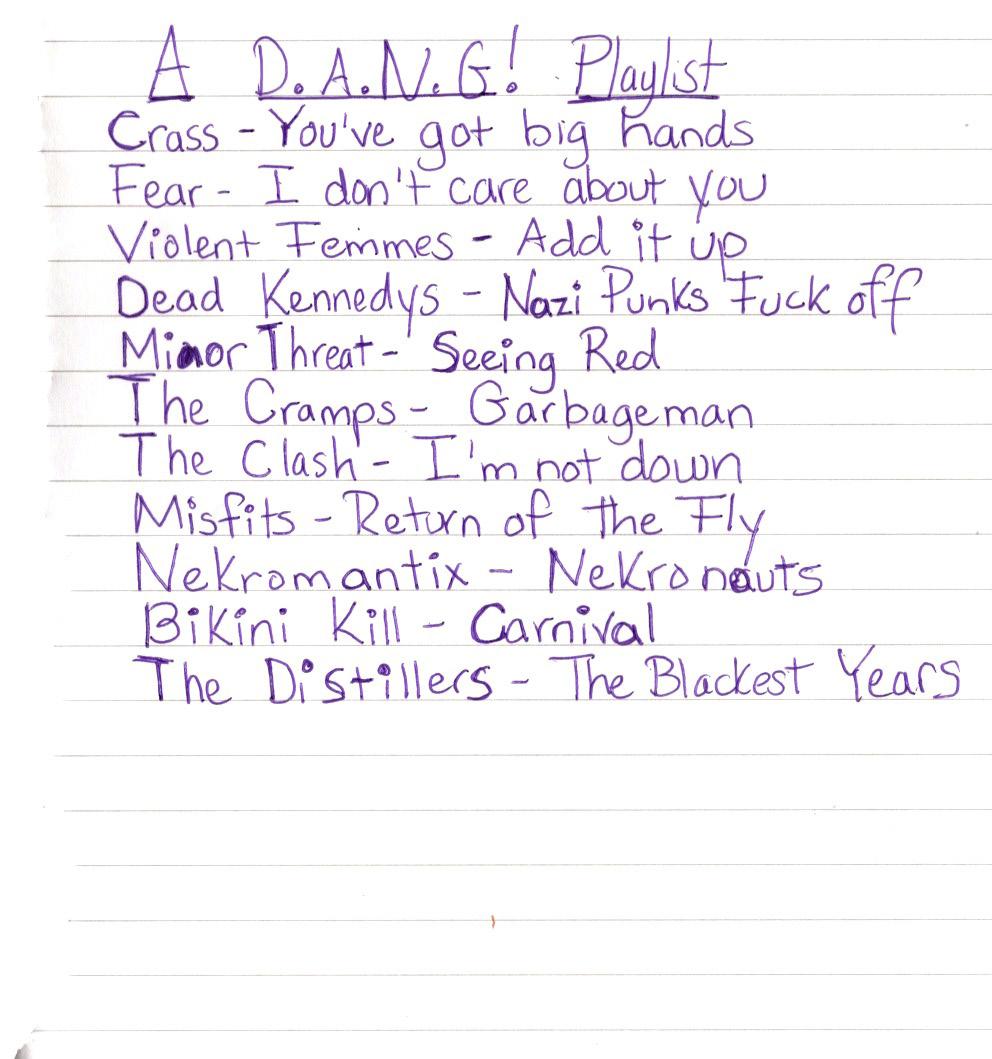 A D.A.N.G! Playlist
Crass - You've got big hands
Fear - I don't care about you
Violent Femmes - Add it up
Dead Kennedys - Nazi Punks Fuck off
Minor Threat - Seeing Red
The Cramps - Garbageman
The Clash - I'm not down
Misfits - Return of the Fly
Nekromantix - Nekronauts
Bikini Kill - Carnival
The Distillers - The Blackest Years